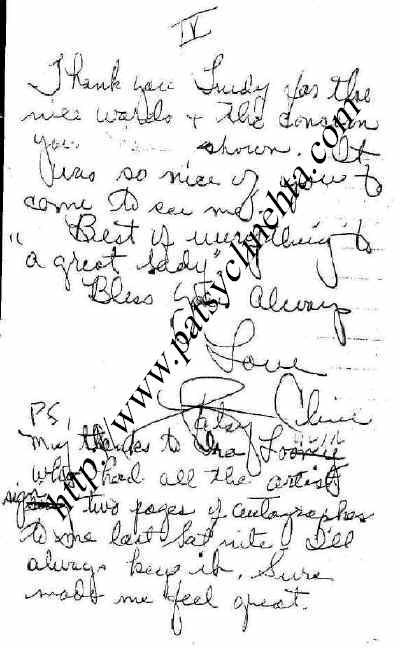 IV
Thank you Trudy for the
nice words + the concern
you shown. It
was so nice of you to
come to see me.
"Best of everything to
a great lady"
Bless You Always
Love
Patsy Cline
PS,
My thanks to Ira
who had all the artists
sign two pages of autographes
to me last Sat nite. I'll
always keep it. Sure
made me feel great.
http://www.patsyclinehta.com